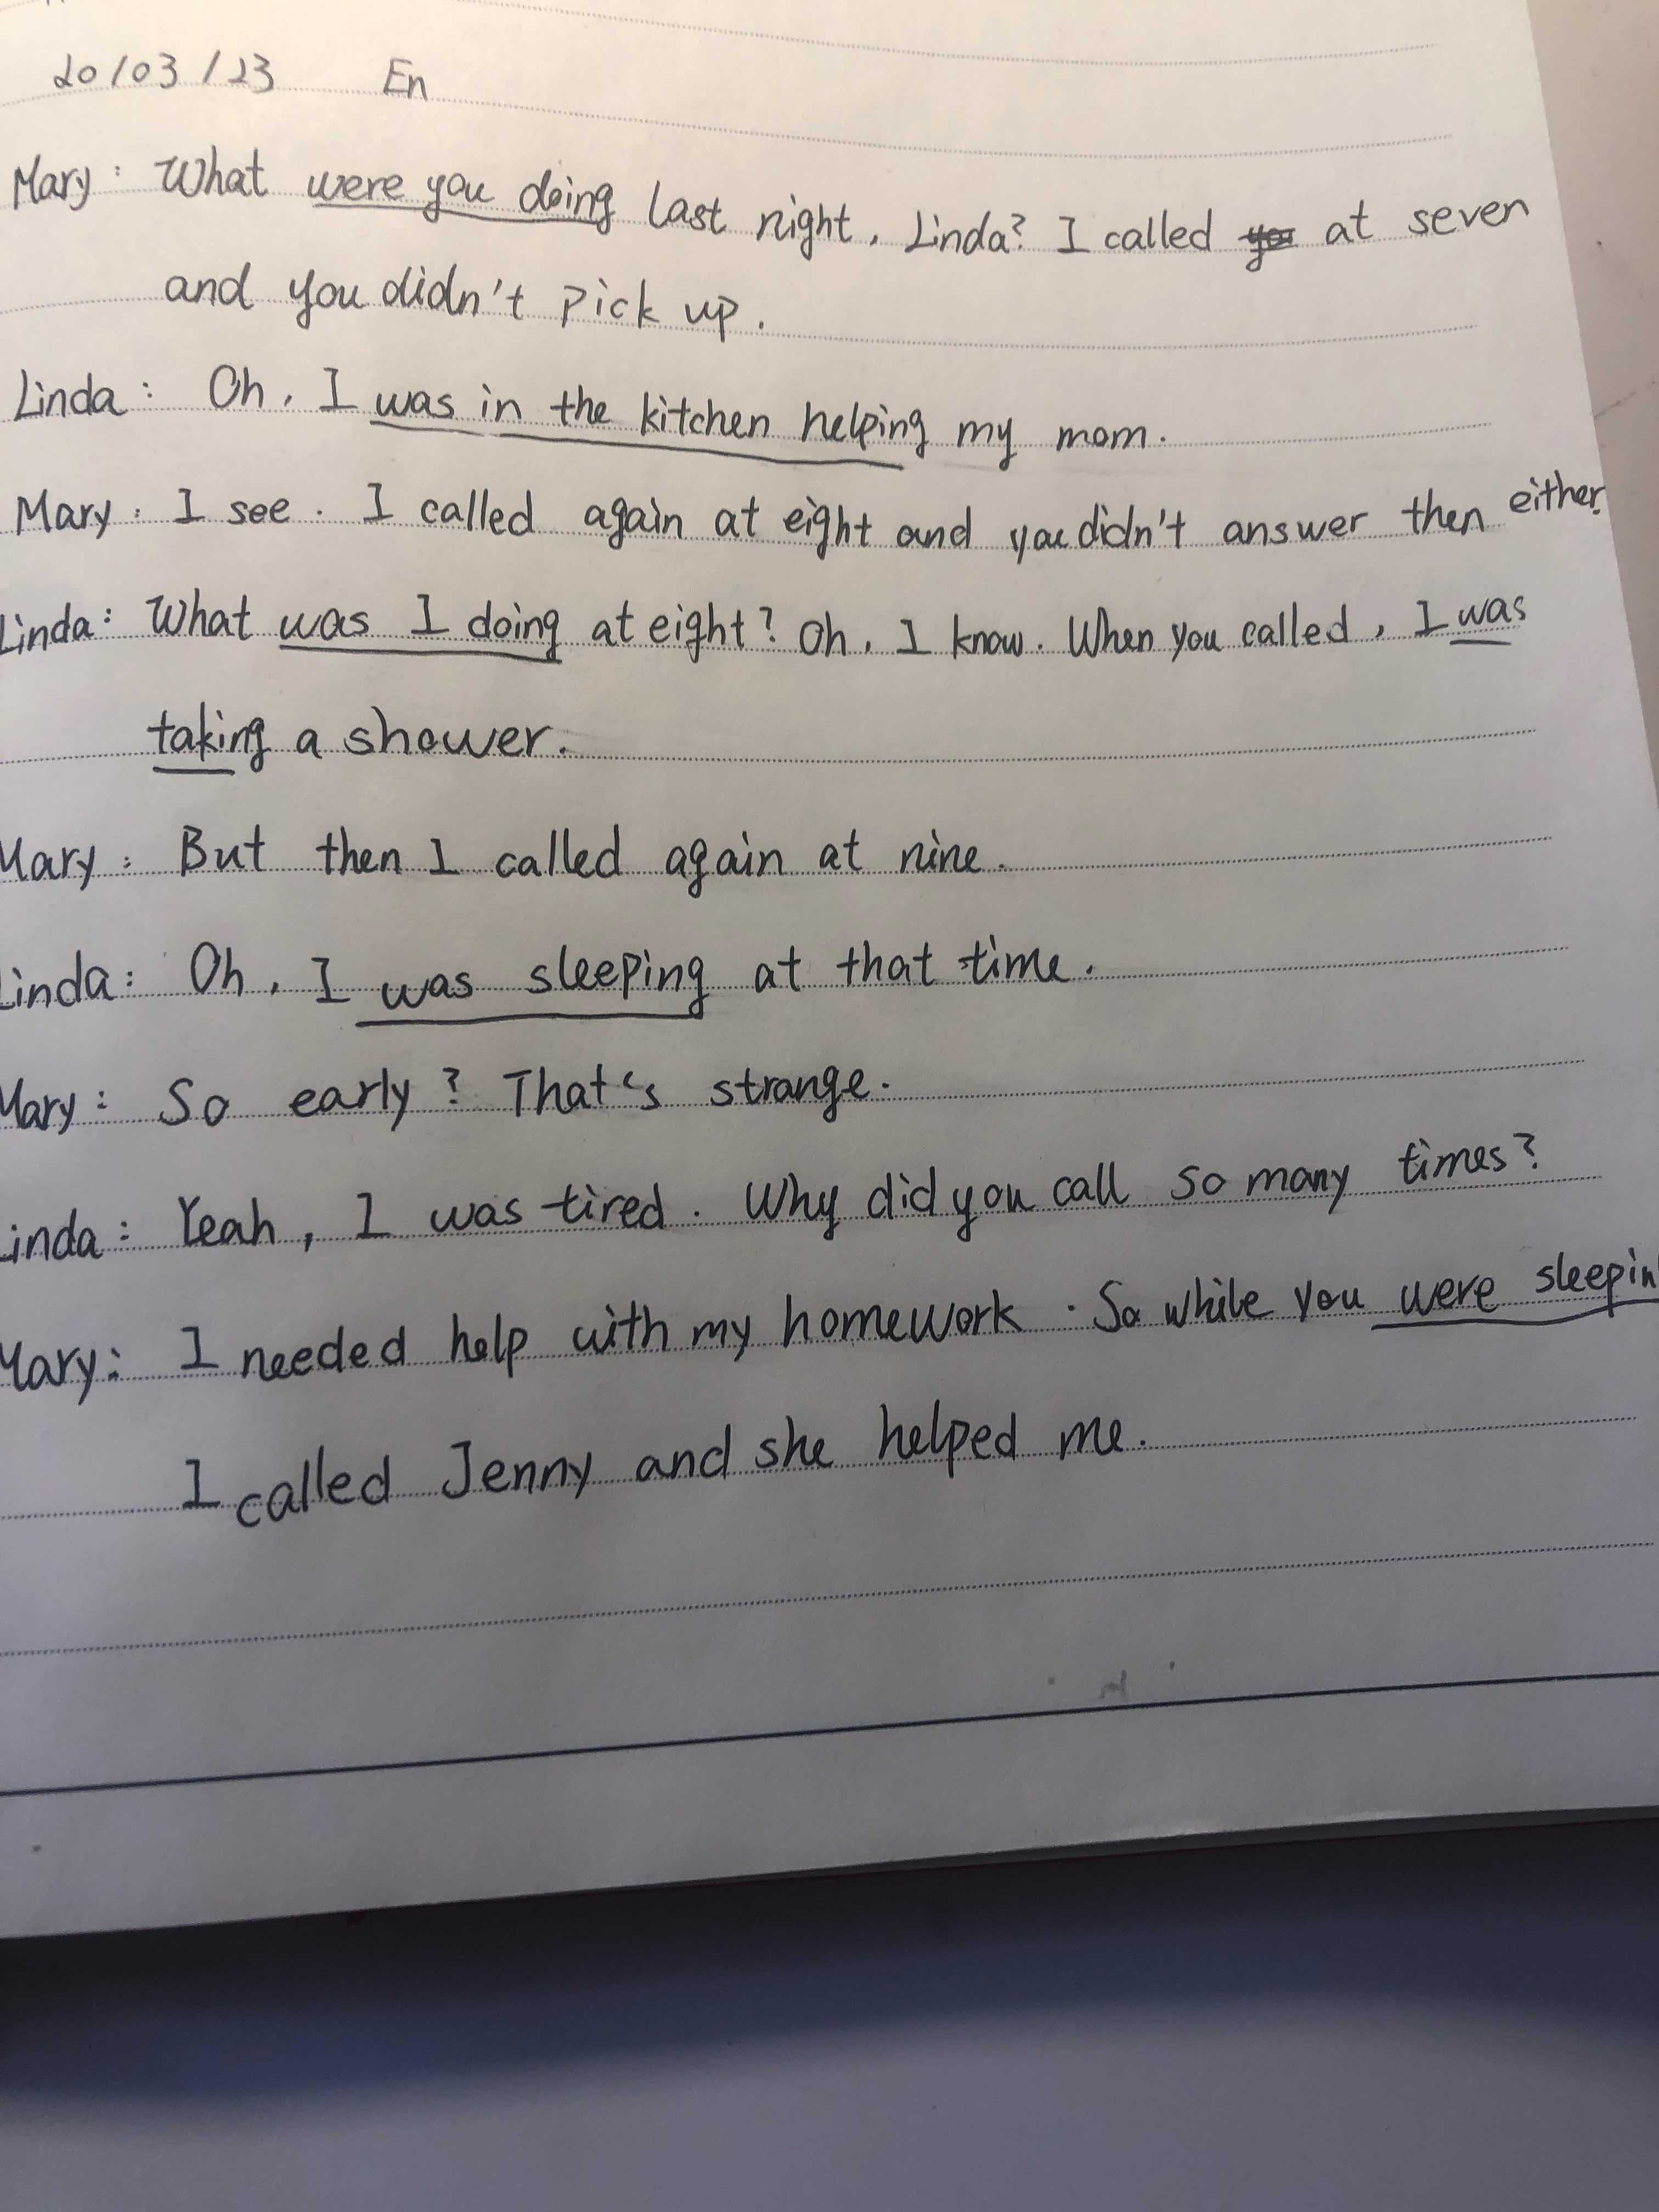 20/03/23 En
Mary: What were you doing last night, Linda? I called you at seven
and you didn't pick up.
Linda: Oh, I was in the kitchen helping my mom.
Mary: I see. I called again at eight and you didn't answer then either.
Linda: What was I doing at eight? Oh, I know. When you called, I was
taking a shower.
Mary: But then I called again at nine.
Linda: Oh, I was sleeping at that time.
Mary: So early? That's strange.
Linda: Yeah, I was tired. Why did you call so many times?
Mary: I needed help with my homework. So while you were sleepin
I called Jenny and she helped me.